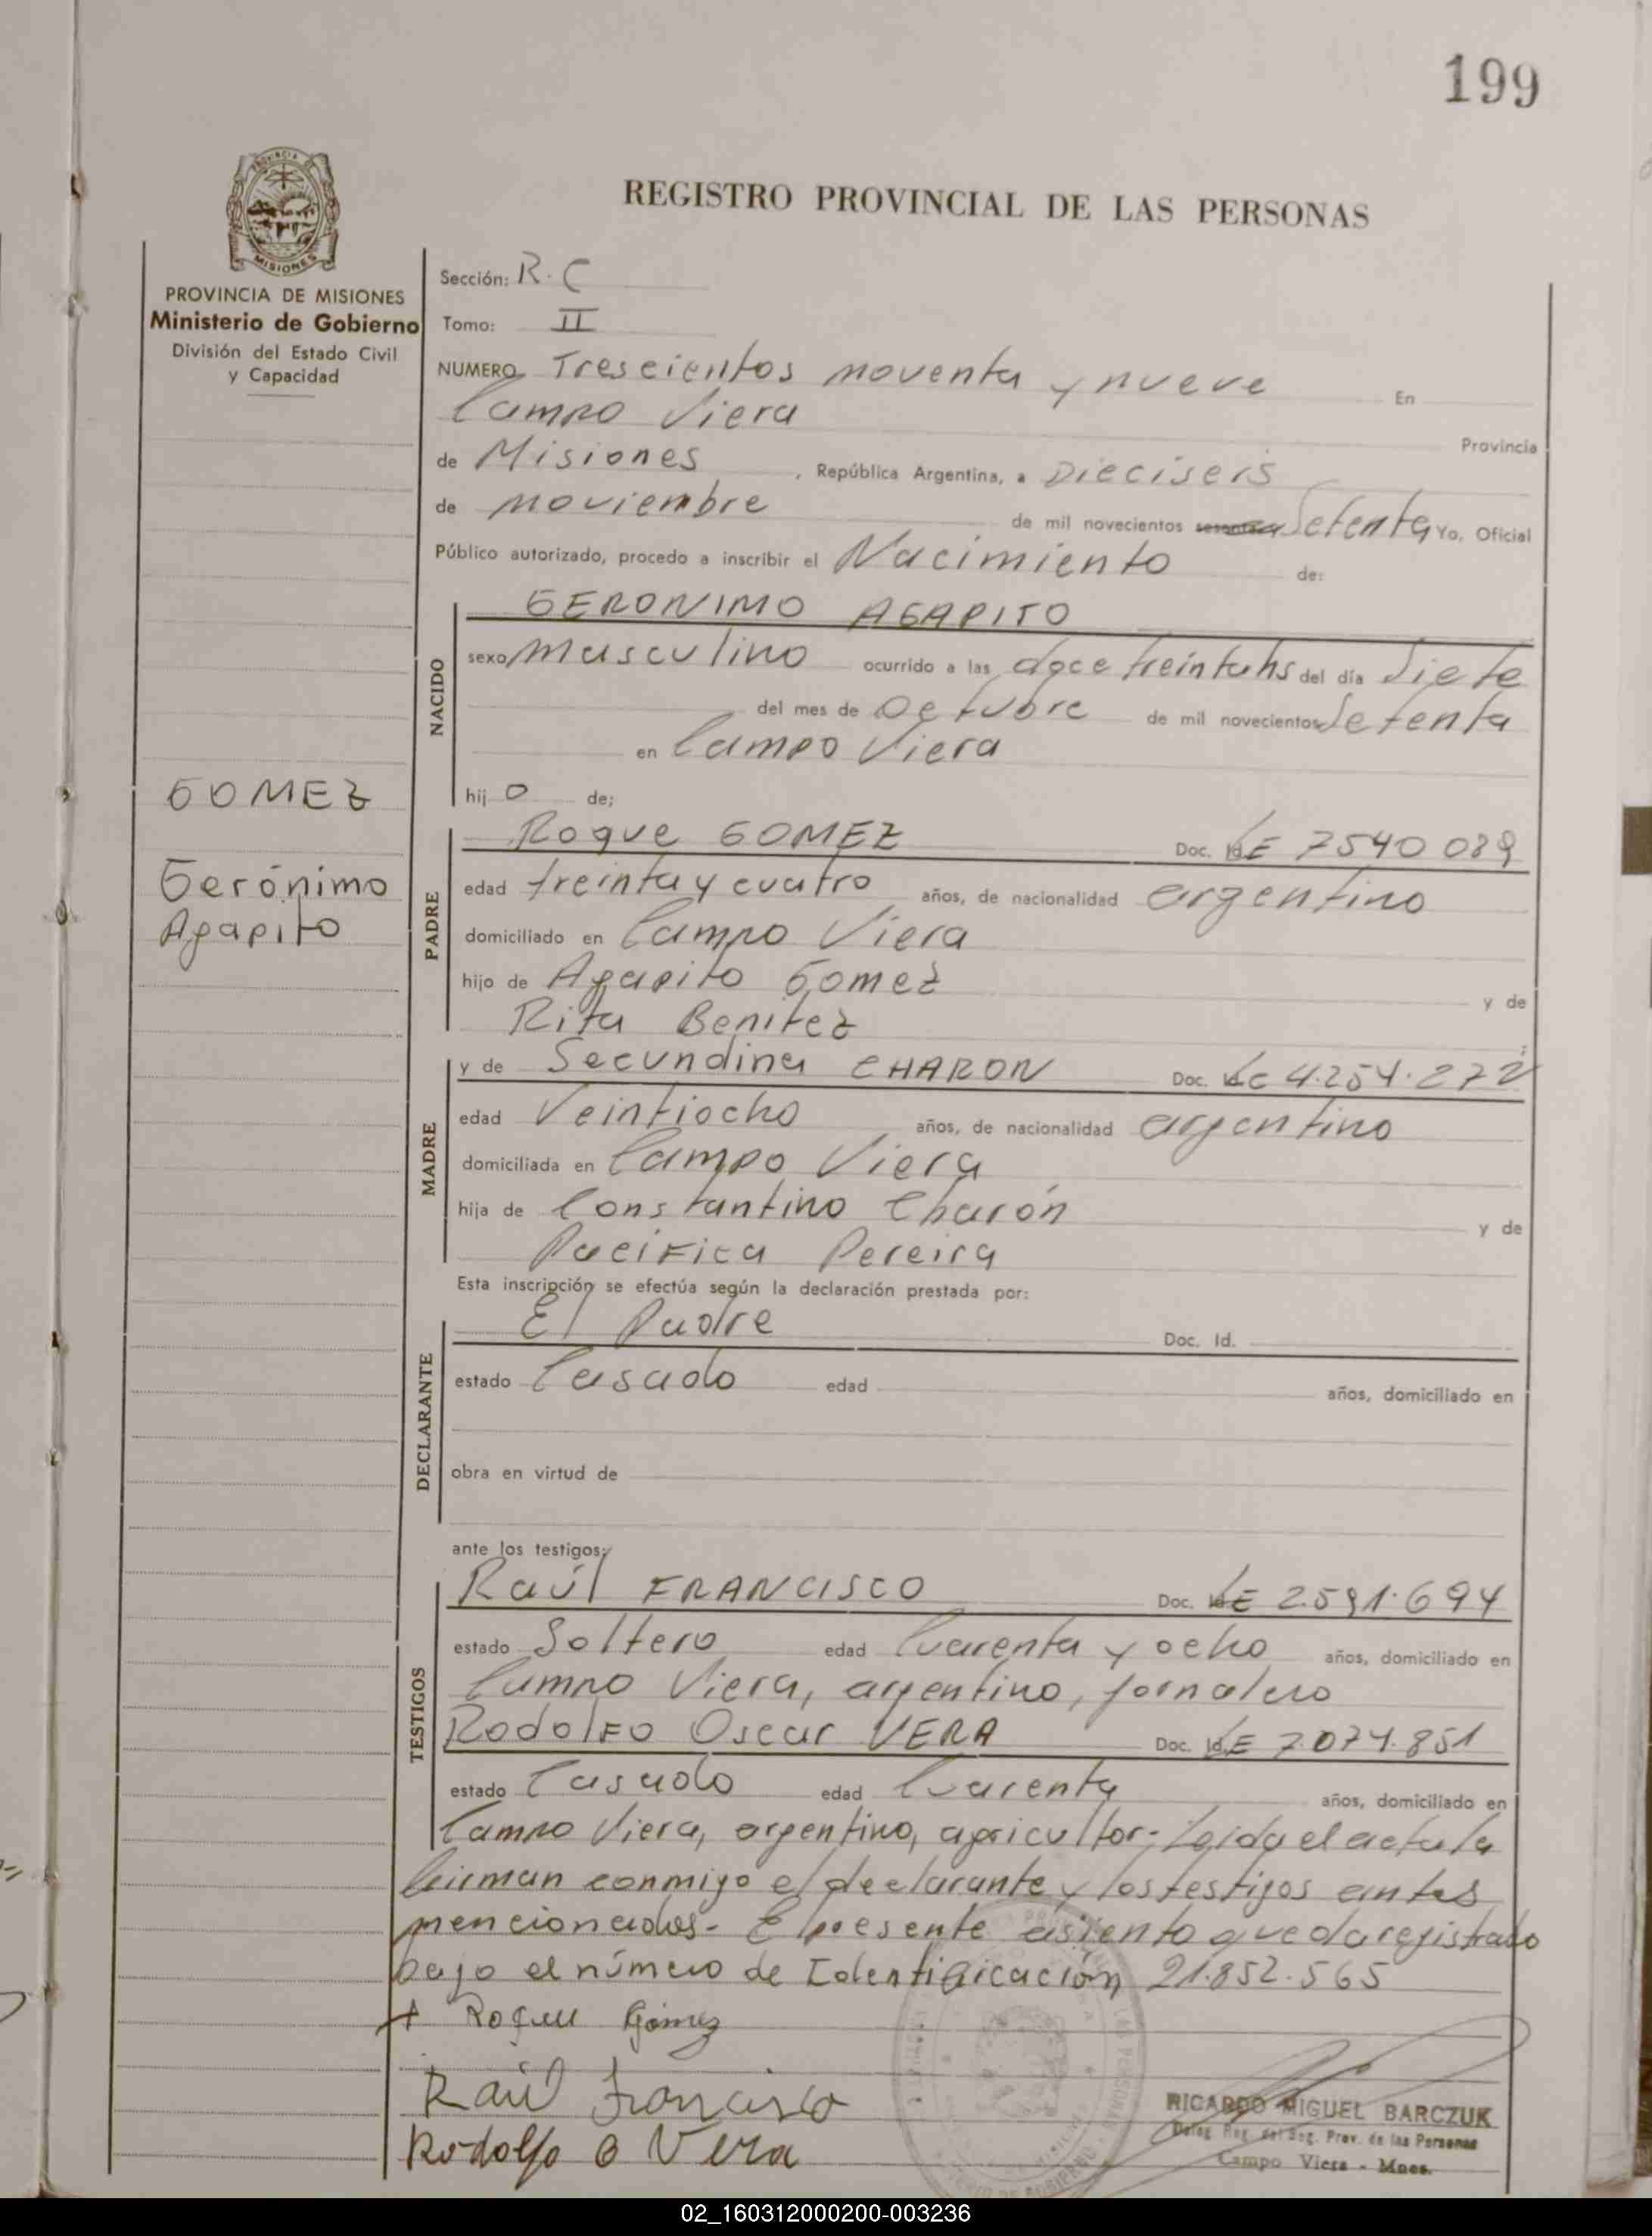 199
REGISTRO PROVINCIAL DE LAS PERSONAS
PROVINCIA DE MISIONES
Ministerio de Gobierno
División del Estado Civil
y Capacidad
GOMEZ
Gerónimo
Agapito
Sección: R. C
Tomo: II
NUMERO Trescientos noventa y nueve En
Campo Viera Provincia
de Misiones , República Argentina, a Dieciseis
de noviembre de mil novecientos sesenta Setenta Yo, Oficial
Público autorizado, procedo a inscribir el Nacimiento de:
NACIDO
GERONIMO AGAPITO
sexo masculino ocurrido a las doce treinta hs del día Siete
del mes de Octubre de mil novecientos Setenta
en Campo Viera
hij o de;
PADRE
Roque GOMEZ Doc. Id. LE 7540 089
edad treinta y cuatro años, de nacionalidad argentino
domiciliado en Campo Viera
hijo de Agapito Gomez y de
Rita Benitez
MADRE
y de Secundina CHARON Doc. LC 4.254.272
edad Veintiocho años, de nacionalidad argentino
domiciliada en Campo Viera
hija de Constantino Charón y de
Pacifica Pereira
Esta inscripción se efectúa según la declaración prestada por:
DECLARANTE
El Padre Doc. Id.
estado Casado edad años, domiciliado en
obra en virtud de
ante los testigos:
TESTIGOS
Raúl FRANCISCO Doc. Id. LE 2.591.694
estado Soltero edad Cuarenta y ocho años, domiciliado en
Campo Viera, argentino, jornalero
Rodolfo Oscar VERA Doc. Id. LE 7.074.851
estado Casado edad Cuarenta años, domiciliado en
Campo Viera, argentino, agricultor- Leida el acta la
firman conmigo el declarante y los testigos antes
mencionados- El presente asiento queda registrado
bajo el número de Identificación 21.852.565
+ Roque Gómez
Raúl Francisco
Rodolfo O Vera
RICARDO MIGUEL BARCZUK
Deleg. Reg. del Reg. Prov. de las Personas
Campo Viera - Mnes.
02_160312000200-003236